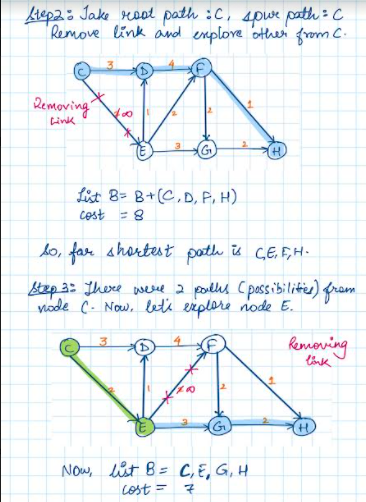 Step2: Take root path : C, spur path : C
Remove link and explore other from C.
C 3 D 4 F
Removing
Link
∞ 1 2 2 1
E 3 G 2 H
List B = B+(C, D, F, H)
cost = 8
So, far shortest path is C,E,F,H.
Step 3: There were 2 paths (possibilities) from
node C. Now, let's explore node E.
C 3 D 4 F
Removing
link
2 1 ∞ 2 1
E 3 G 2 H
Now, list B = C, E, G, H
cost = 7